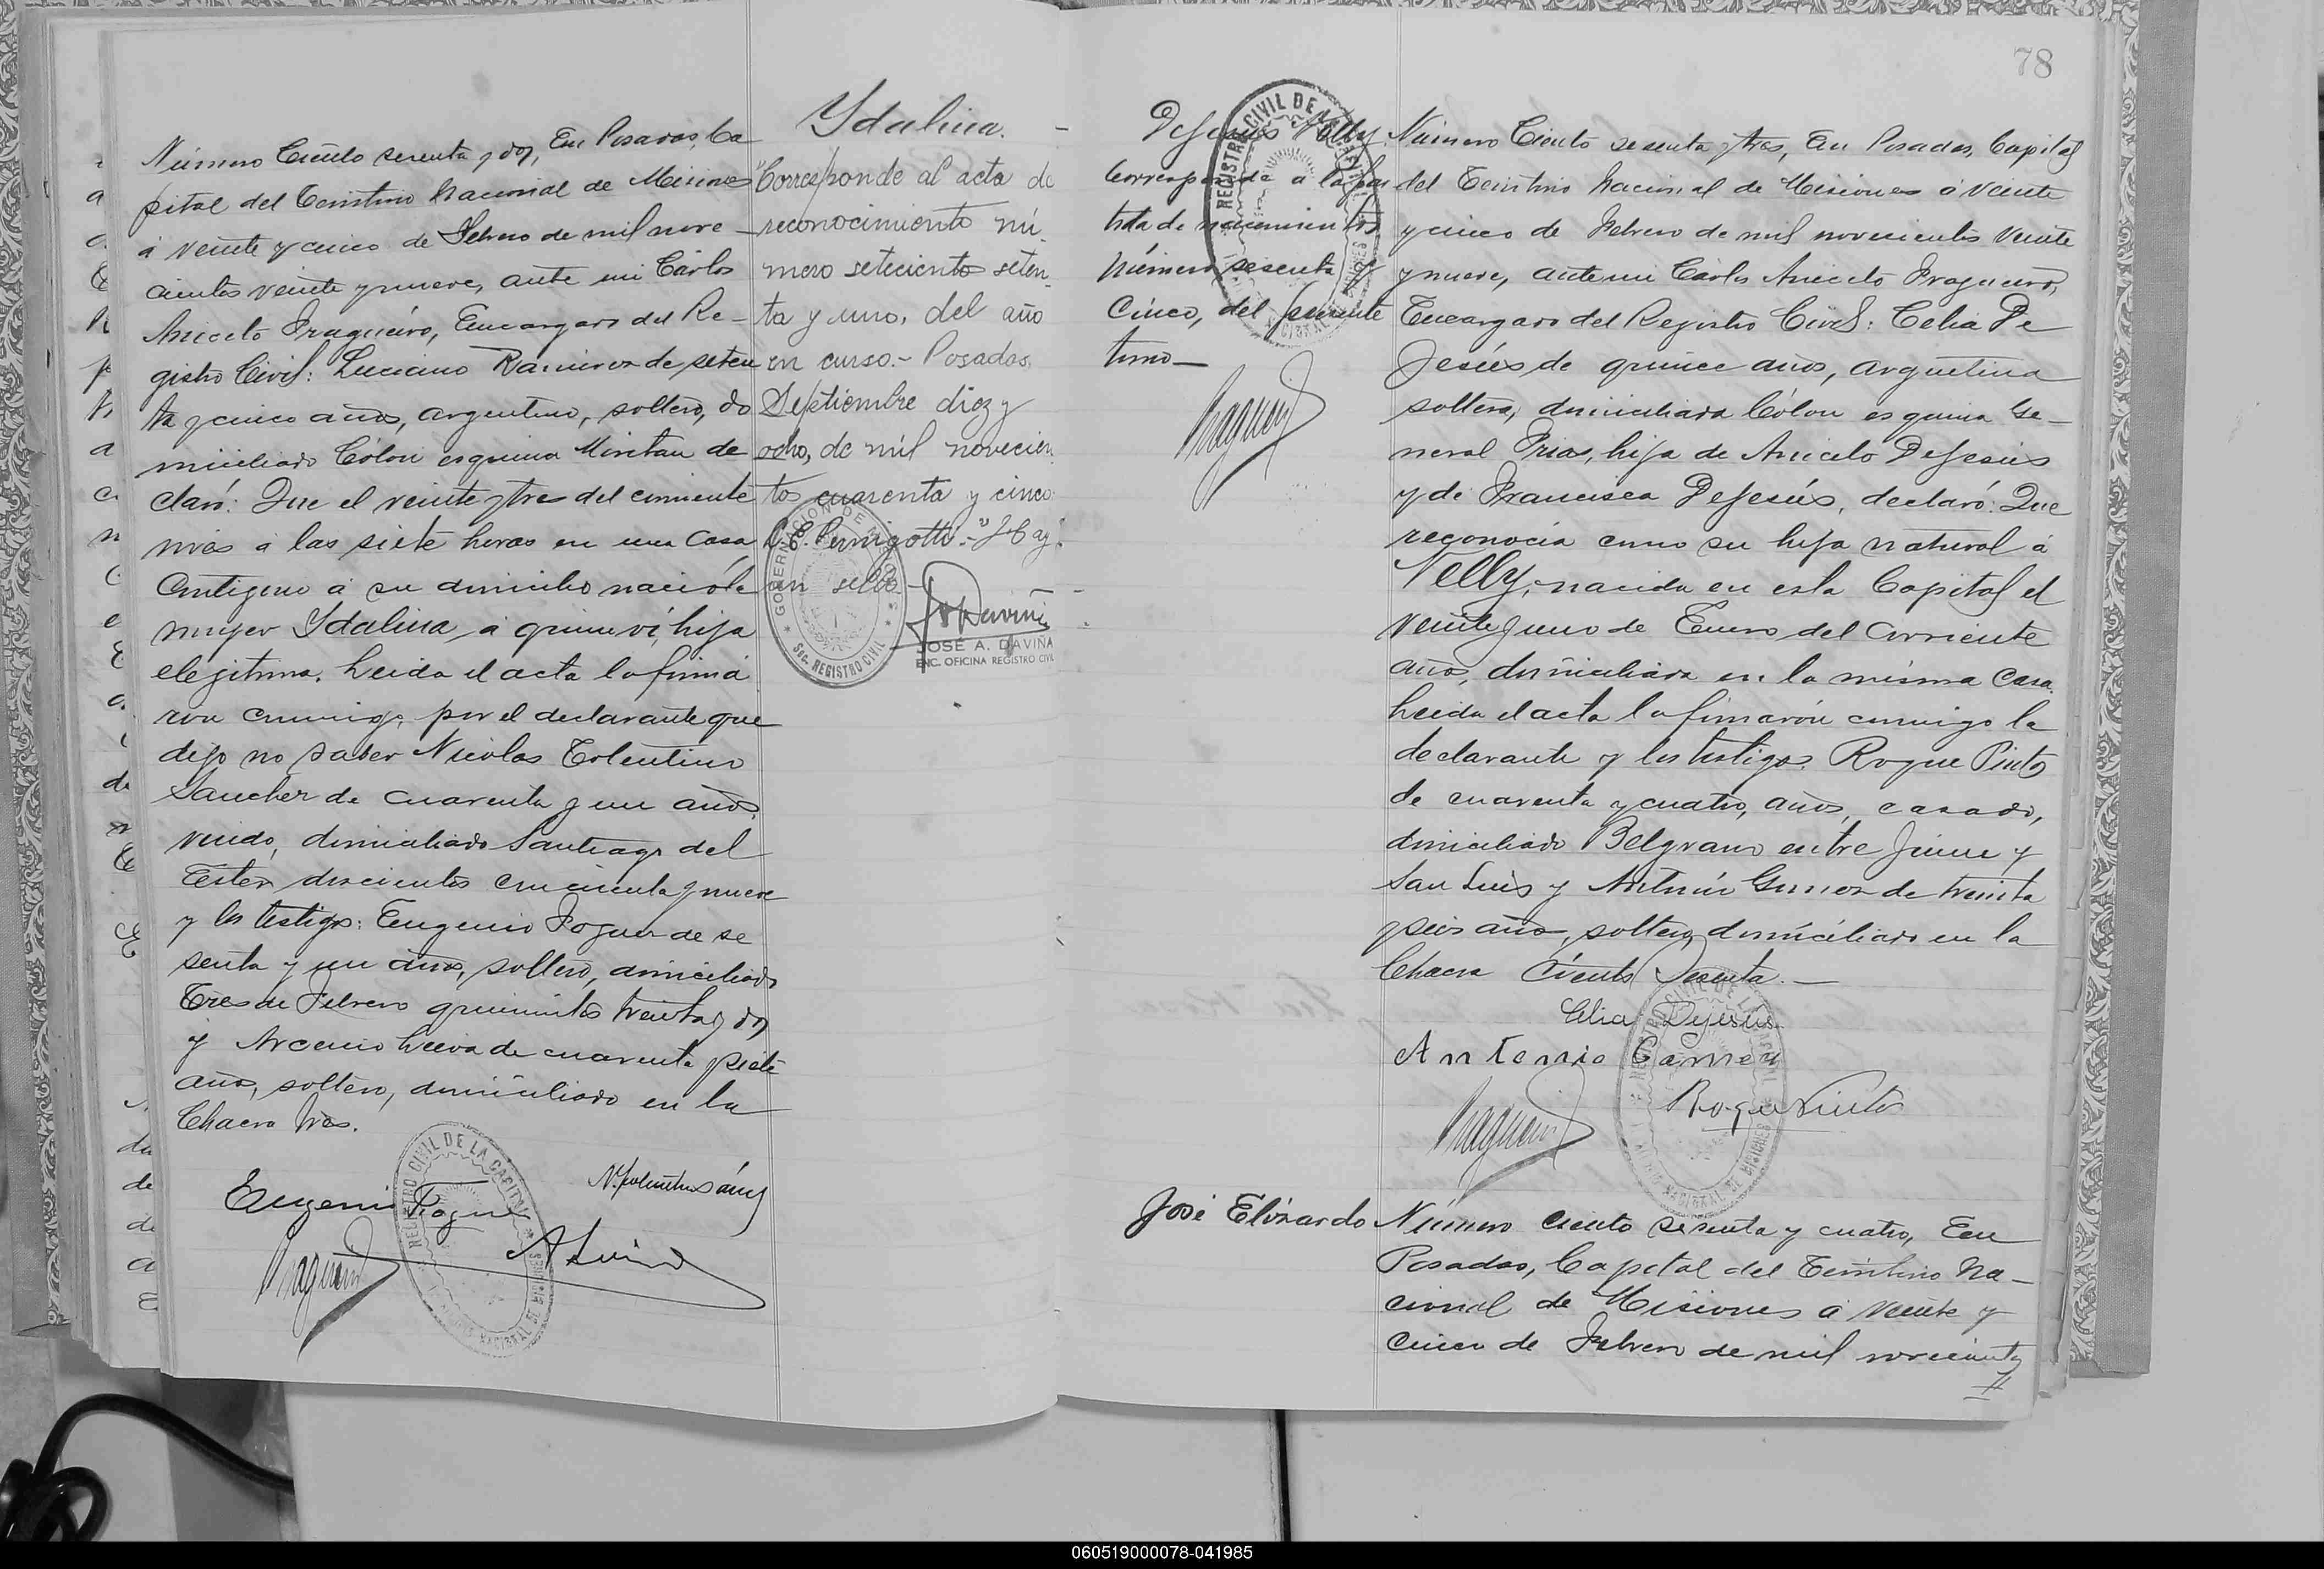 Ydalina.
Número Ciento sesenta y dos, En Posadas, Ca
pital del Territorio Nacional de Misiones
á veinte y cinco de Febrero de mil nove
cientos veinte y nueve, ante mi Cárlos
Aniceto Fragueiro, Encargado del Re-
gistro Civil: Luciano Ramirez de seten
ta y cinco años, argentino, soltero, do
miciliado Cólon esquina declaró:
claró: Que el veinte y tres del corriente
mes á las siete horas en una Casa
Contigua á su domicilio nació la
mujer Ydalina, á quien ví, hija
elegitima. Leida el acta la firma
ron conmigo, por el declarante que
dijo no saber Nicolas Tolentino
Sanchez de cuarenta y un años,
viudo, domiciliado Santiago del
Estero doscientos cincuenta y nueve
y los testigos: Eugenio de se
senta y un años, soltero, domiciliado
Tres de Febrero quinientos treinta y dos
y Arcenio Leiva de cuarenta y siete
años, soltero, domiciliado en la
Chacra tres.
"Corresponde al acta de
reconocimiento nú-
mero setecientos seten-
ta y uno, del año
en curso.- Posadas,
Septiembre diez y
ocho, de mil novecien
tos cuarenta y cinco.
Pernigotti.-" Hay
un sello.-
JOSÉ A. DAVIÑA
ENC. OFICINA REGISTRO CIVIL
GOBERNACION DE MISIONES
SEC. REGISTRO CIVIL
Eugenio
N. Tolentino
REGISTRO CIVIL DE LA CAPITAL
TERRITORIO NACIONAL DE MISIONES
78
DeJesús Nelly
Corresponde a la par
tida de nacimientos
número sesenta y
Cinco, del presente
tomo—
REGISTRO CIVIL DE LA CAPITAL
Número Ciento sesenta y tres, En Posadas, Capital
del Territorio Nacional de Misiones á veinte
y cinco de Febrero de mil novecientos veinte
y nueve, ante mi Cárlos Aniceto Fragueiro,
Encargado del Registro Civil: Celia De
Jesús de quince años, argentina
soltera, domiciliada Cólon esquina Ge-
neral Frias, hija de Aniceto DeJesús
y de Francisca DeJesús, declaró: Que
reconocía como su hija natural á
Nelly, nacida en esta Capital el
veinte y uno de Enero del corriente
año, domiciliada en la misma casa.
Leida el acta la firmarón conmigo la
declarante y los testigos Roque Pinto
de cuarenta y cuatro, años, casado,
domiciliado Belgrano entre Junin y
San Luis y Antonio de treinta
y seis años, soltero, domiciliado en la
Chacra Ciento Sesenta.—
Celia Dejesus
Antonio
Roque Pinto
REGISTRO CIVIL DE LA CAPITAL
TERRITORIO NACIONAL DE MISIONES
José Elizardo
Número ciento sesenta y cuatro, En
Posadas, Capital del Territorio Na-
cional de Misiones á veinte y
cinco de Febrero de mil novecientos
060519000078-041985